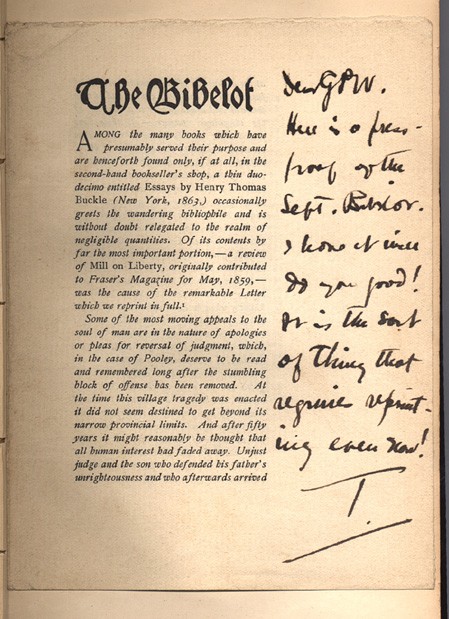 The Bibelot
AMONG the many books which have
presumably served their purpose and
are henceforth found only, if at all, in the
second-hand bookseller's shop, a thin duo-
decimo entitled Essays by Henry Thomas
Buckle (New York, 1863,) occasionally
greets the wandering bibliophile and is
without doubt relegated to the realm of
negligible quantities. Of its contents by
far the most important portion,—a review
of Mill on Liberty, originally contributed
to Fraser's Magazine for May, 1859,—
was the cause of the remarkable Letter
which we reprint in full.¹
Some of the most moving appeals to the
soul of man are in the nature of apologies
or pleas for reversal of judgment, which,
in the case of Pooley, deserve to be read
and remembered long after the stumbling
block of offense has been removed. At
the time this village tragedy was enacted
it did not seem destined to get beyond its
narrow provincial limits. And after fifty
years it might reasonably be thought that
all human interest had faded away. Unjust
judge and the son who defended his father's
unrighteousness and who afterwards arrived
Dear G P W.
Here is a press-
proof of the
Sept. Bibelot.
I hope it will
do you good!
It is the sort
of thing that
requires reprint-
ing even now!
T.